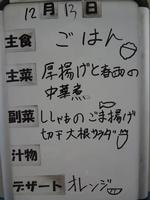 12月13日
主食 ごはん
主菜 厚揚げと春雨の
中華煮
副菜 ししゃものごま揚げ
切干大根サラダ
汁物
デザート オレンジ